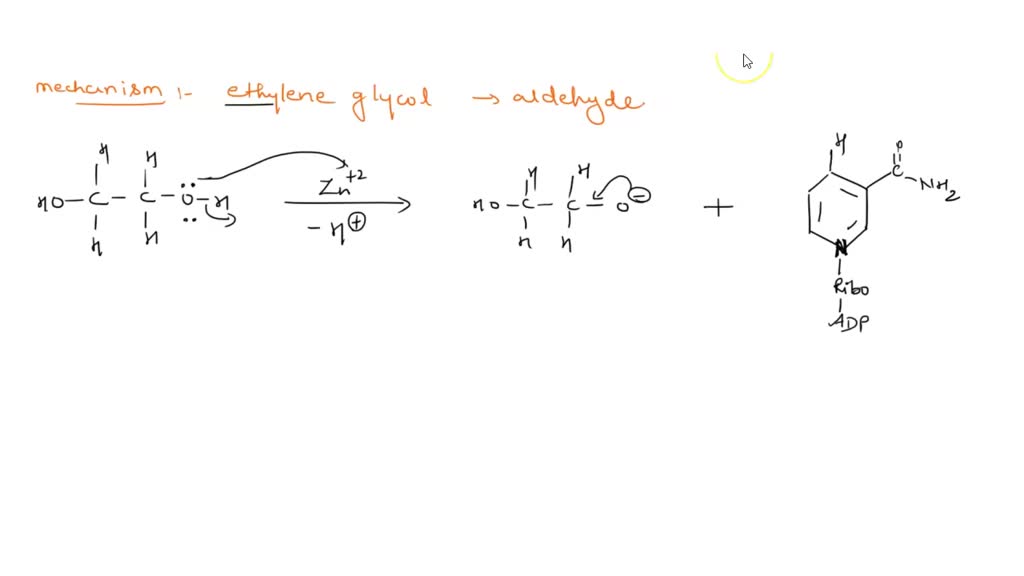 mechanism :- ethylene glycol → aldehyde
H H
HO-C-C-O-H
H H
Zn+2
-H⊕
H H
HO-C-C-O⊖
H H
+
H O
C-NH2
N
Ribo
ADP